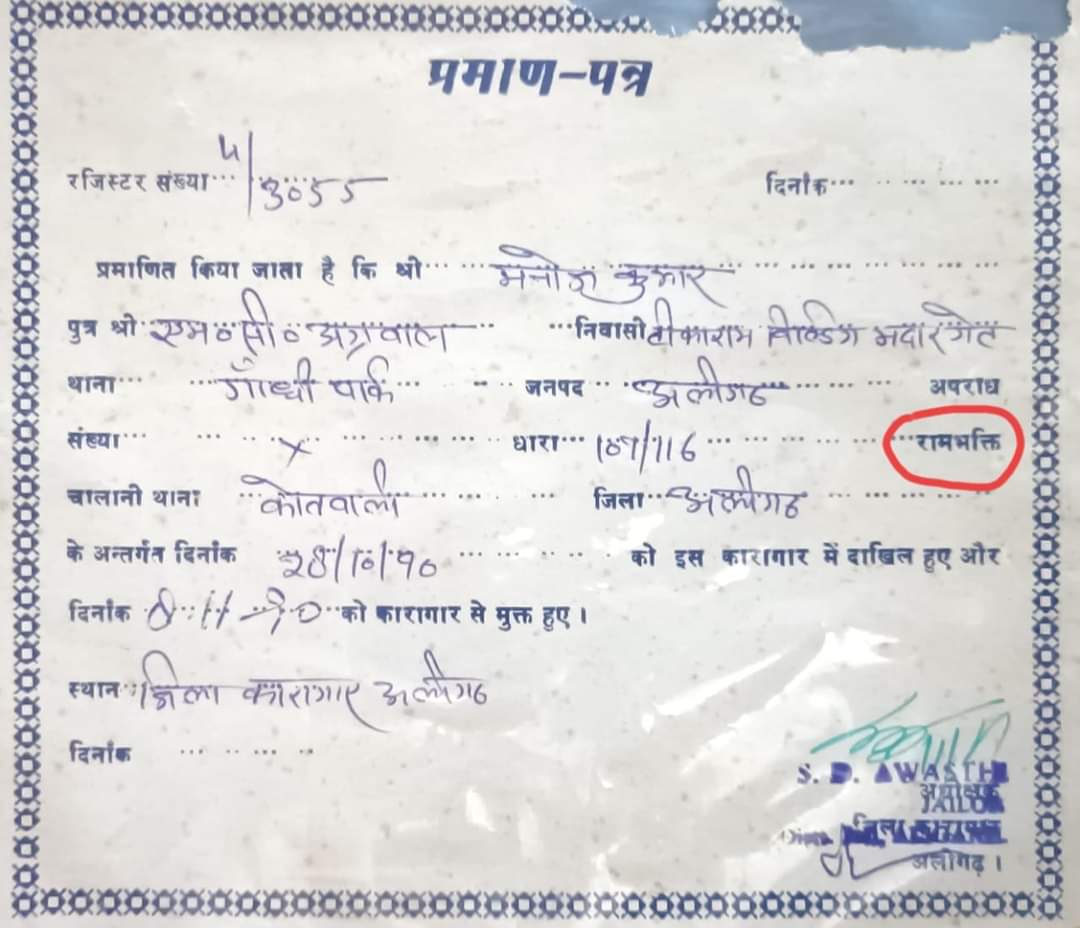 प्रमाण-पत्र
रजिस्टर संख्या 5/3055 दिनांक
प्रमाणित किया जाता है कि श्री मनोज कुमार
पुत्र श्री एम॰सी॰ अग्रवाल निवासी टीकाराम बिल्डिंग मदारगेट
थाना गाँधी पार्क जनपद अलीगढ अपराध
संख्या × धारा 107/116 रामभक्ति
चालानी थाना कोतवाली जिला अलीगढ
के अन्तर्गत दिनांक 28/10/90 को इस कारागार में दाखिल हुए और
दिनांक 8-11-90 को कारागार से मुक्त हुए।
स्थान जिला कारागार अलीगढ
दिनांक
S. D. AWASTHI
JAILOR
अलीगढ़।